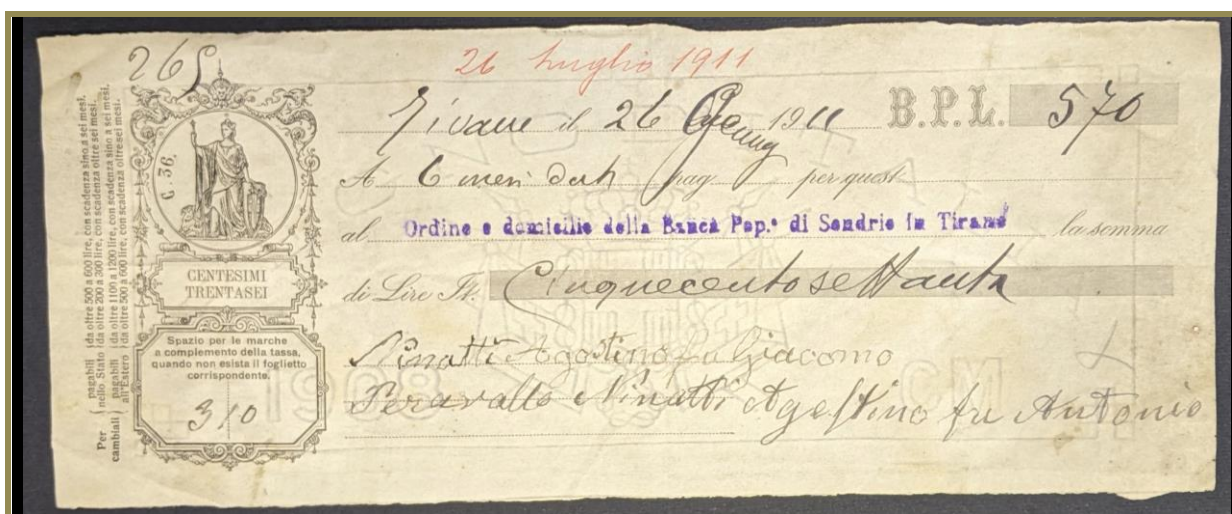 265
26 Luglio 1911
Tirano il 26 Genn 1911 B.P.L. 570
A 6 mesi dat pag per quest
al Ordine e domicilio della Banca Pop.ᵉ di Sondrio in Tirano la somma
di Lire It. Cinquecentosettanta
Ninatti Agostino fu Giacomo
Per avallo Ninatti Agostino fu Antonio
C. 36.
CENTESIMI
TRENTASEI
Spazio per le marche
a complemento della tassa,
quando non esista il foglietto
corrispondente.
310
Per cambiali
pagabili nello Stato
da oltre 500 a 600 lire, con scadenza sino a sei mesi.
da oltre 200 a 300 lire, con scadenza oltre sei mesi.
pagabili all'Estero
da oltre 1100 a 1200 lire, con scadenza sino a sei mesi.
da oltre 500 a 600 lire, con scadenza oltre sei mesi.
1908